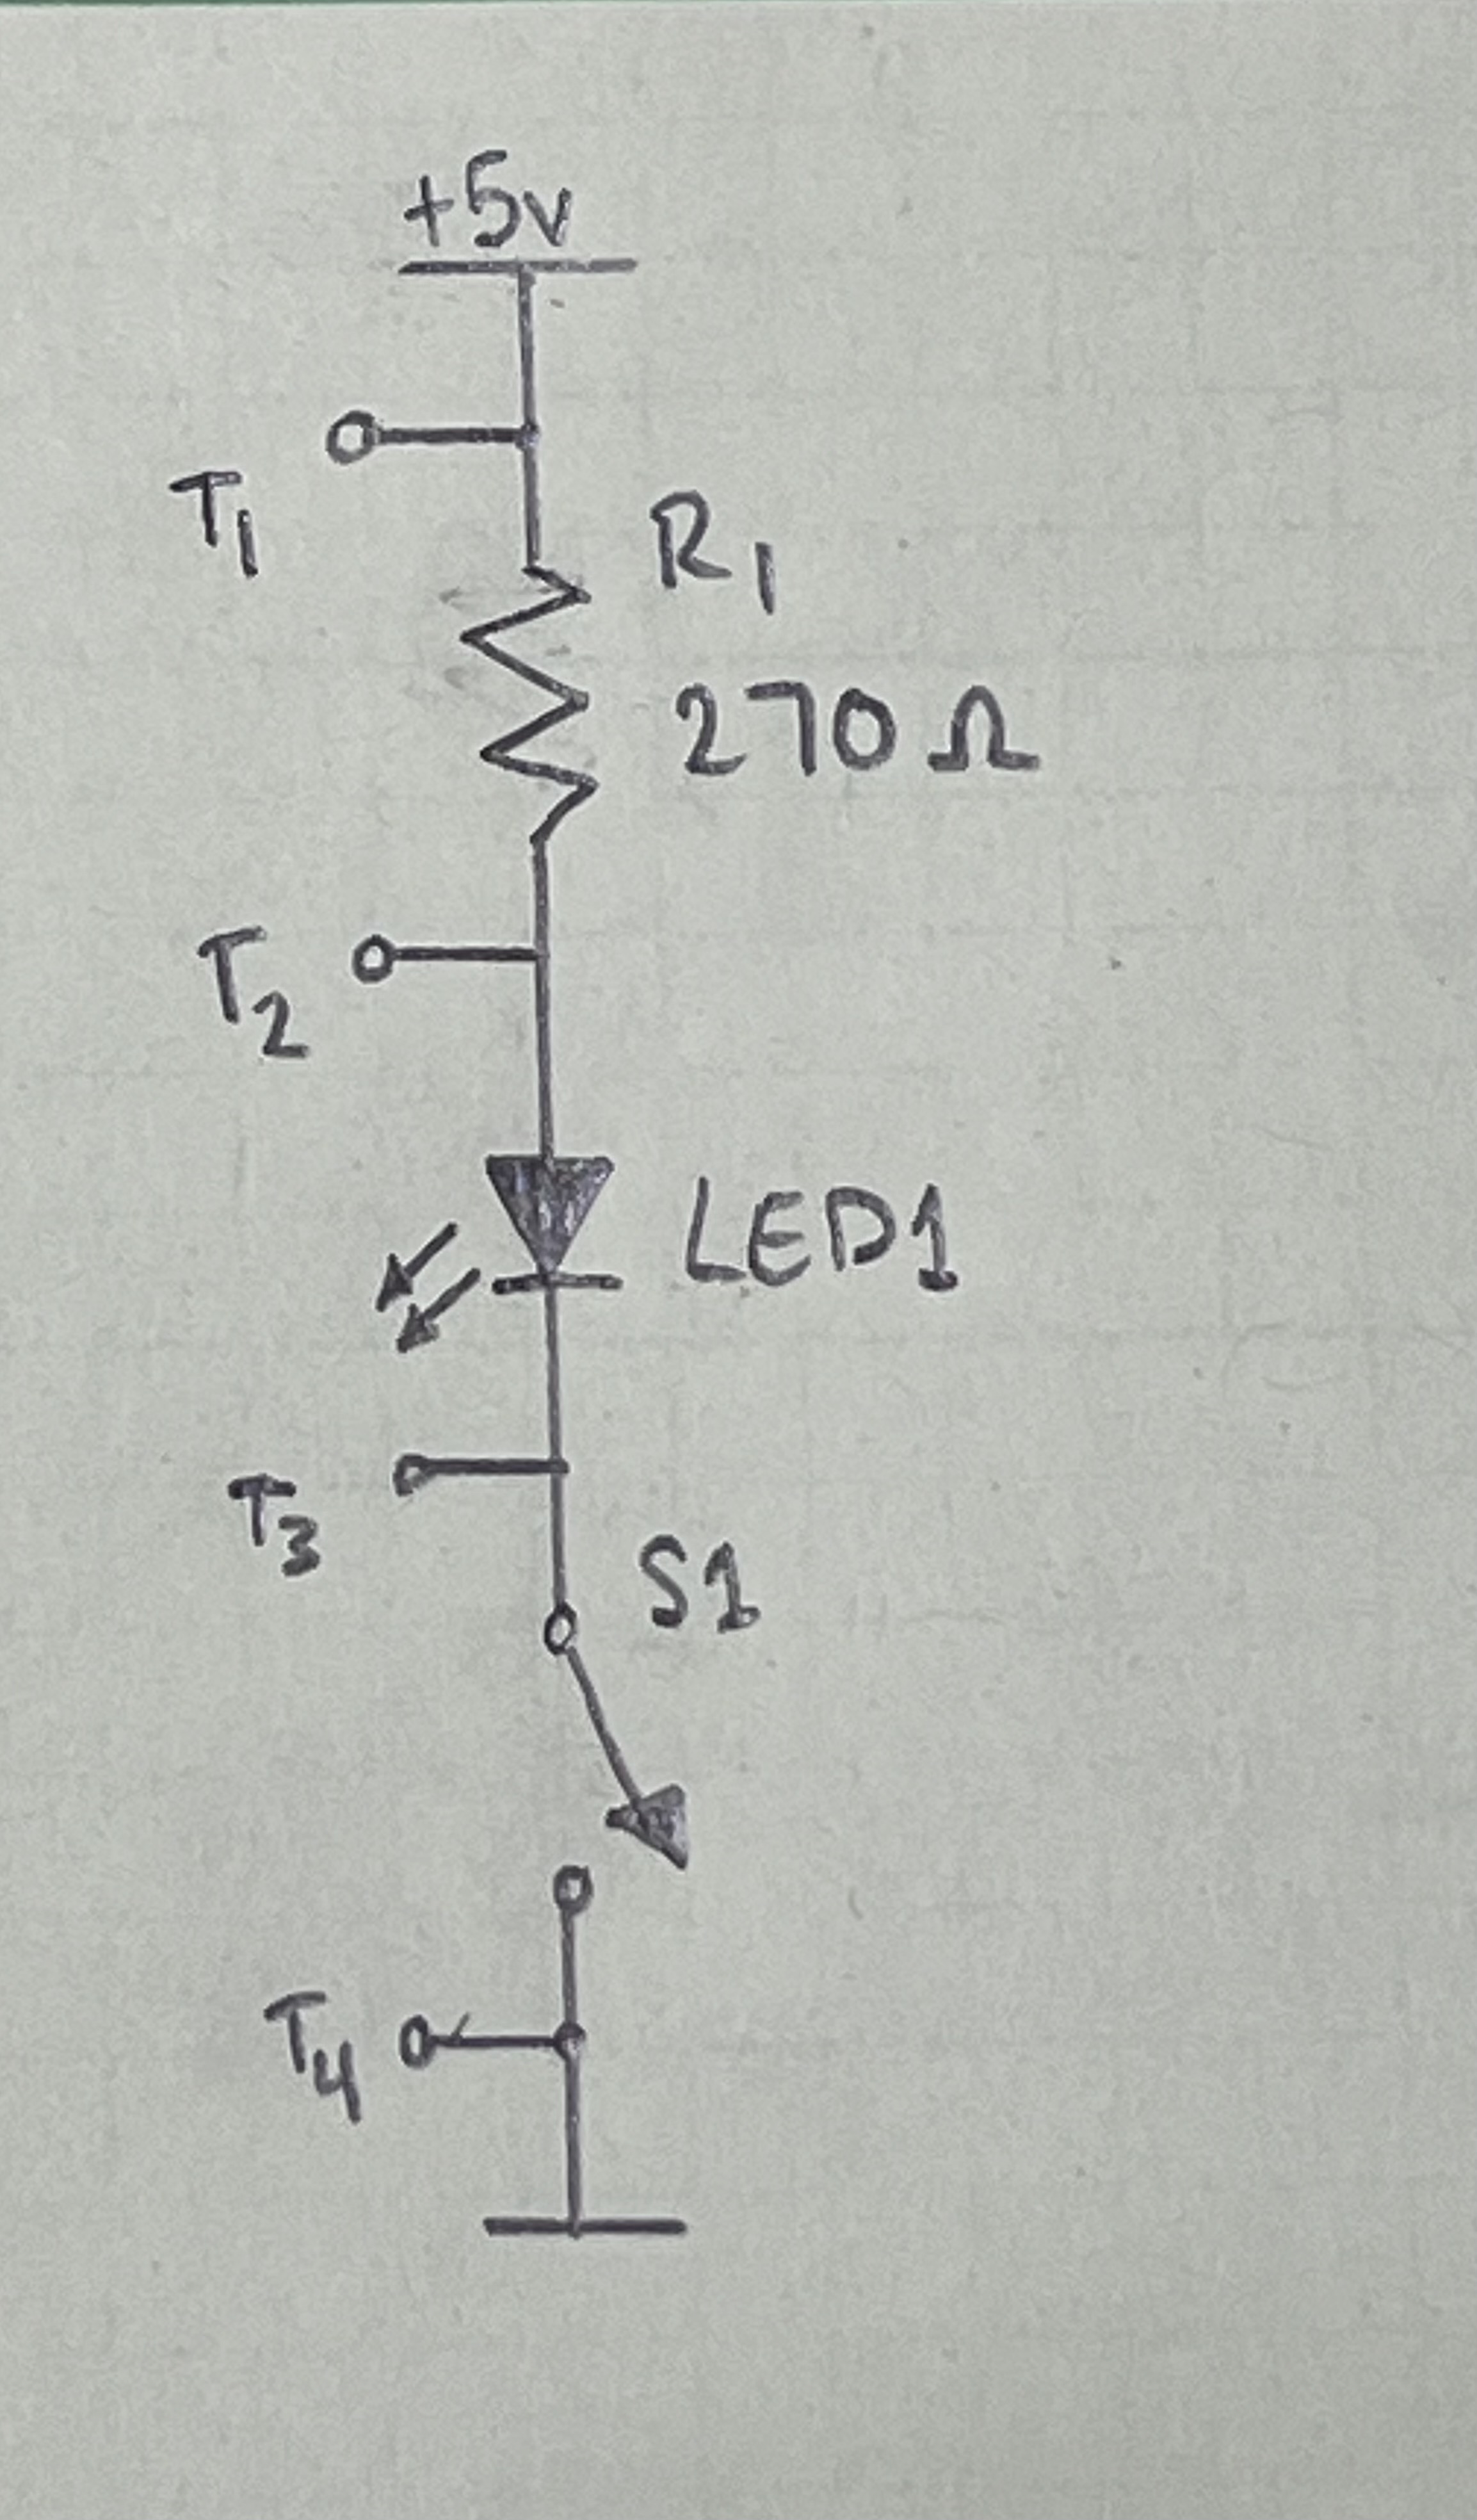 +5v
T1
R1
270 Ω
T2
LED1
T3
S1
T4